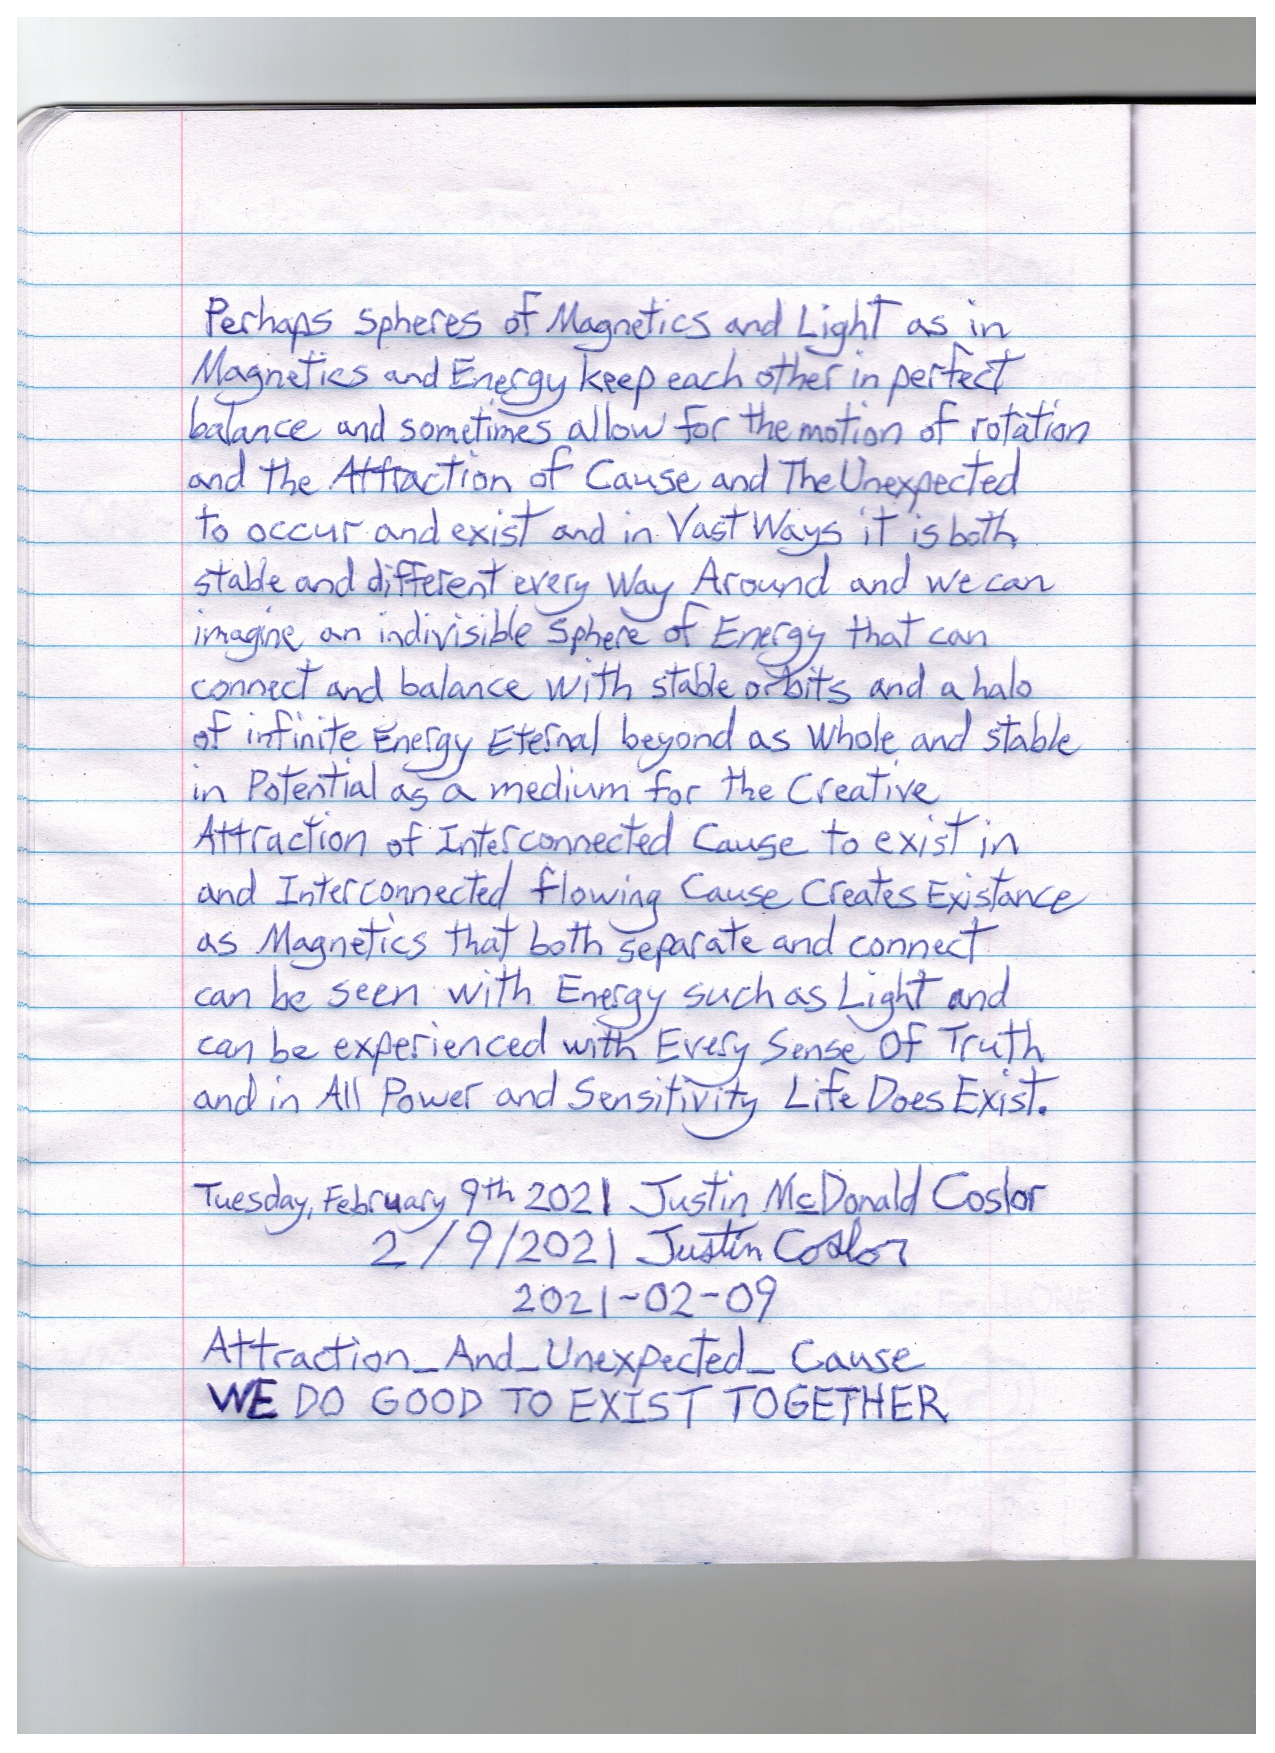 Perhaps spheres of Magnetics and Light as in
Magnetics and Energy keep each other in perfect
balance and sometimes allow for the motion of rotation
and the Attraction of Cause and The Unexpected
to occur and exist and in Vast Ways it is both
stable and different every Way Around and we can
imagine an indivisible Sphere of Energy that can
connect and balance with stable orbits and a halo
of infinite Energy Eternal beyond as Whole and stable
in Potential as a medium for the Creative
Attraction of Interconnected Cause to exist in
and Interconnected flowing Cause Creates Existance
as Magnetics that both separate and connect
can be seen with Energy such as Light and
can be experienced with Every Sense Of Truth
and in All Power and Sensitivity Life Does Exist.
Tuesday, February 9th 2021 Justin McDonald Coslor
2/9/2021 Justin Coslor
2021-02-09
Attraction_And_Unexpected_Cause
WE DO GOOD TO EXIST TOGETHER